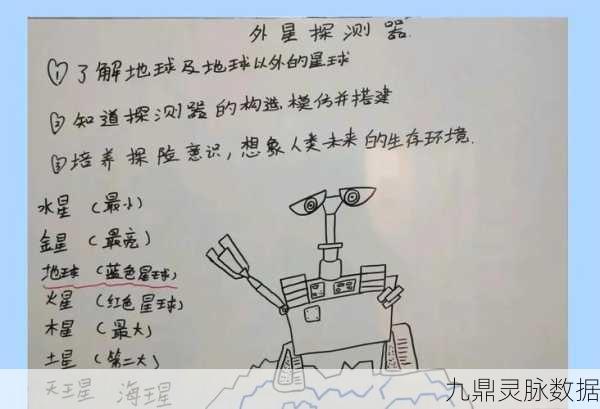 外星探测器
① 了解地球及地球以外的星球
② 知道探测器的构造,模仿并搭建
③ 培养探险意识,想象人类未来的生存环境.
水星 (最小)
金星 (最亮)
地球 (蓝色星球)
火星 (红色星球)
木星 (最大)
土星 (第二大)
天王星 海王星
九鼎灵脉数据